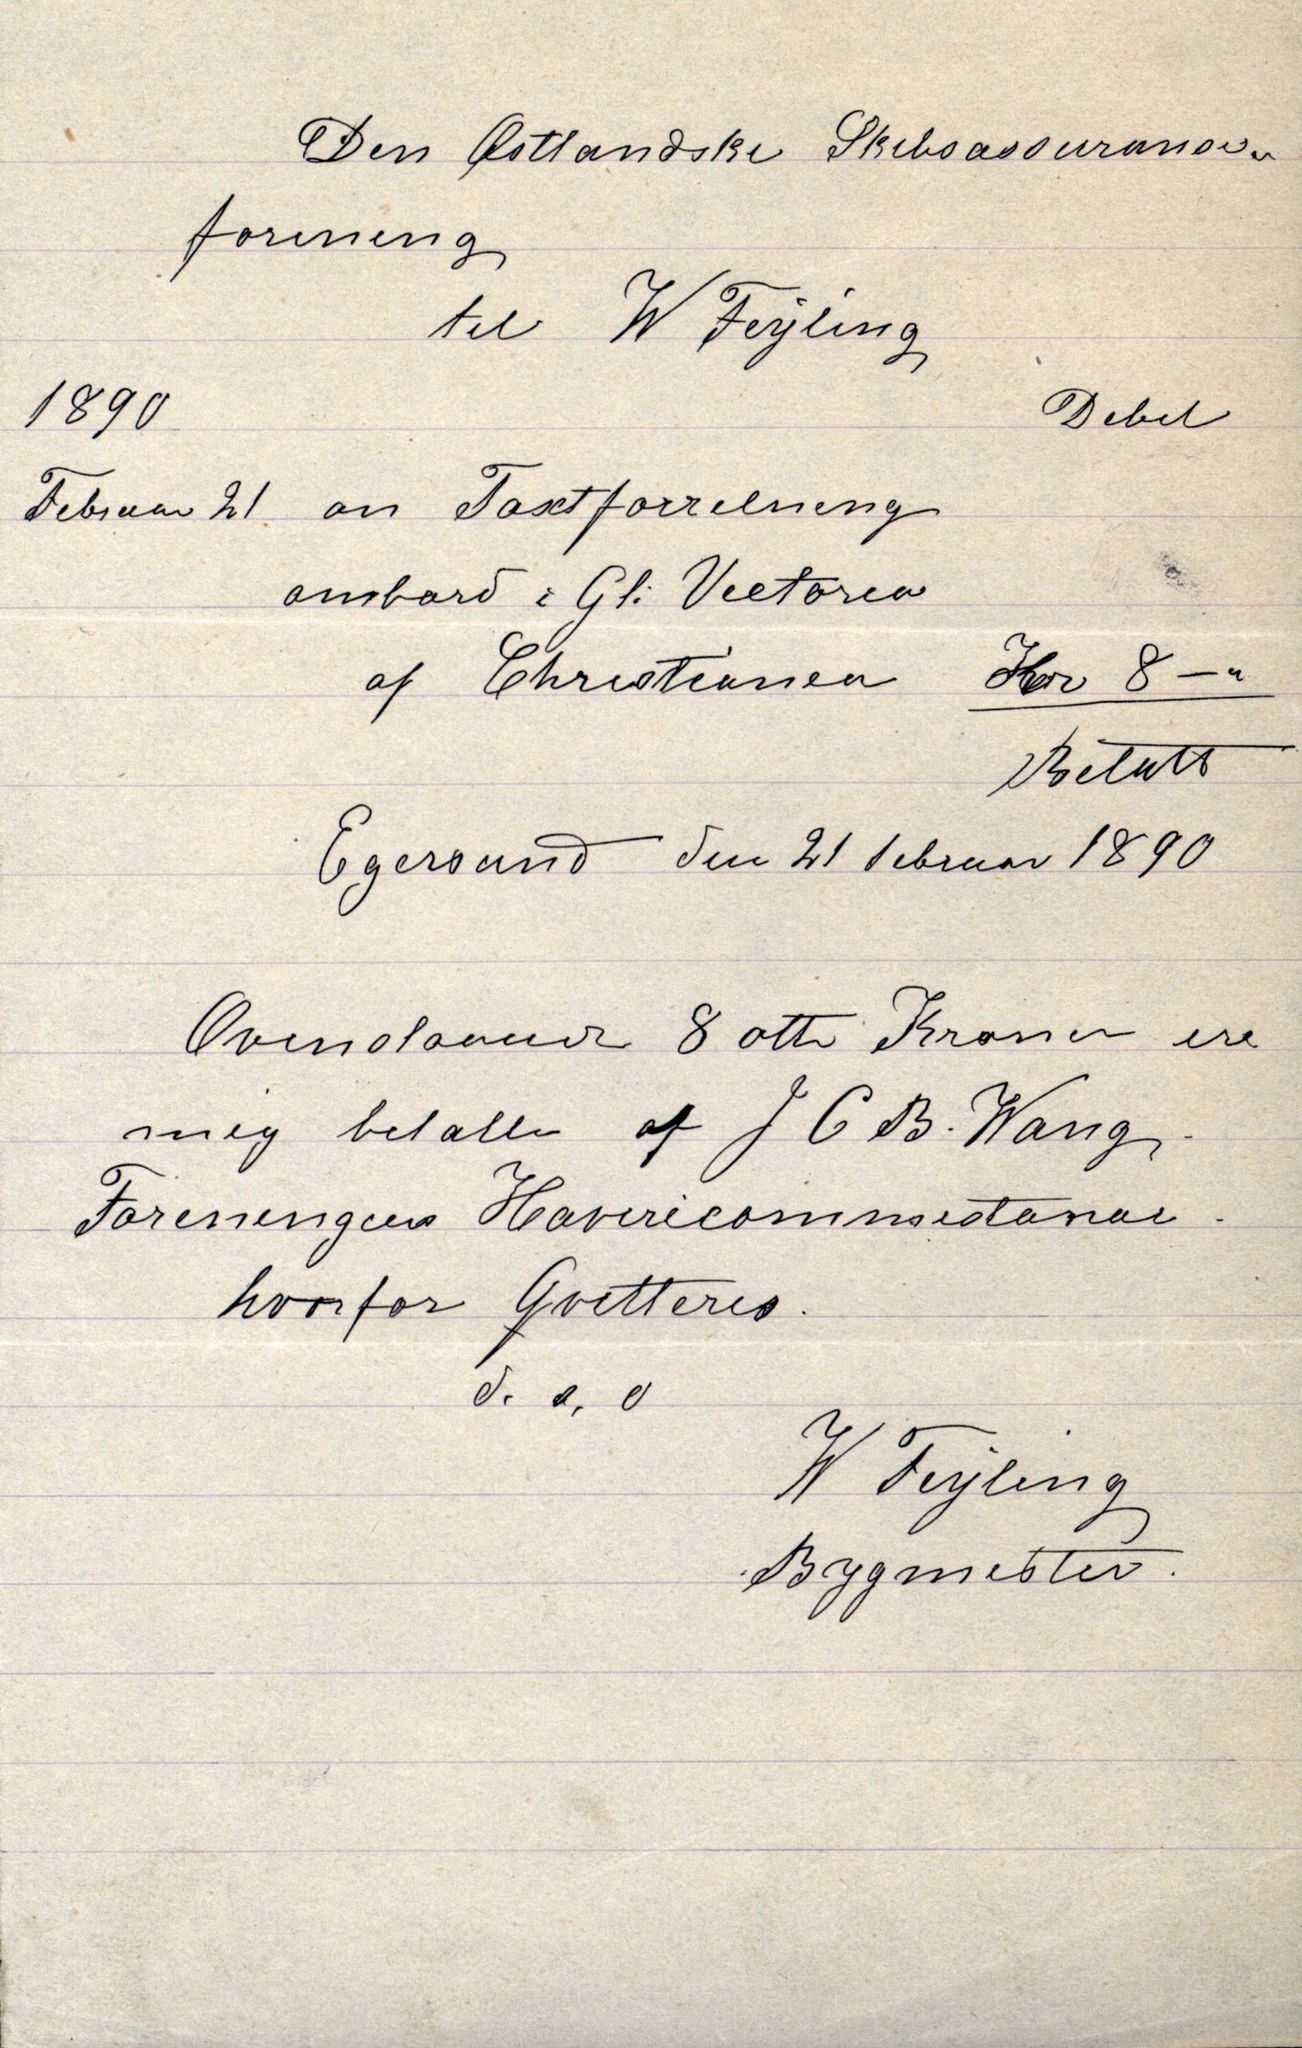 Den Østlandske Skibsassurance„
forening
til W Feyling
1890 Debet
Februar 21 an Taxtforretning
ombord i Gl: Victoria
af Christiania Kr 8 – "
Betalt
Egersund den 21 februar 1890
Ovenstaaende 8 otte Kroner ere
mig betalte af J C B. Wang.
Foreningens Havericommisionær.
hvorfor Qvitteres.
d. s, o
W Feyling
Bygmester.